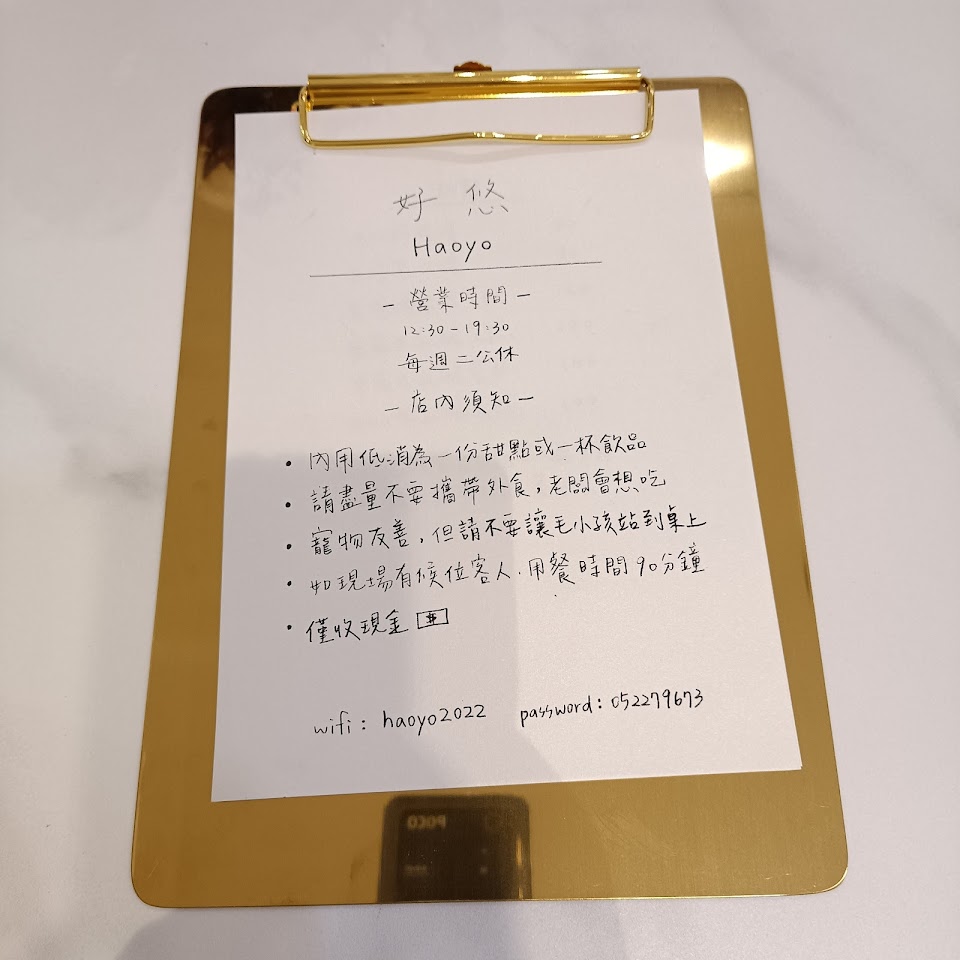 好 悠
Haoyo
- 營業時間 -
12:30 - 19:30
每週二公休
- 店內須知 -
• 內用低消為一份甜點或一杯飲品
• 請盡量不要攜帶外食,老闆會想吃
• 寵物友善,但請不要讓毛小孩站到桌上
• 如現場有候位客人.用餐時間90分鐘
• 僅收現金
wifi : haoyo2022 password : 052279673
POCO